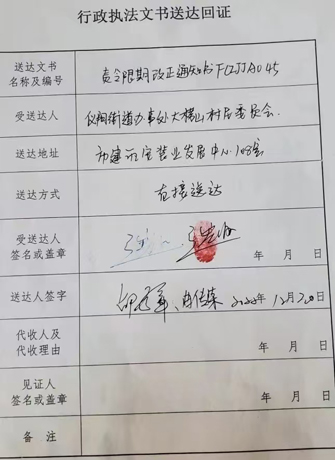 行政执法文书送达回证
送达文书
名称及编号
责令限期改正通知书FCZJJA045
受送达人
仪阳街道办事处大横山村居委员会.
送达地址
发展中心108室
送达方式
直接送达
受送达人
签名或盖章
年 月 日
送达人签字
年12月30日
代收人及
代收理由
年 月 日
见证人
签名或盖章
年 月 日
备 注